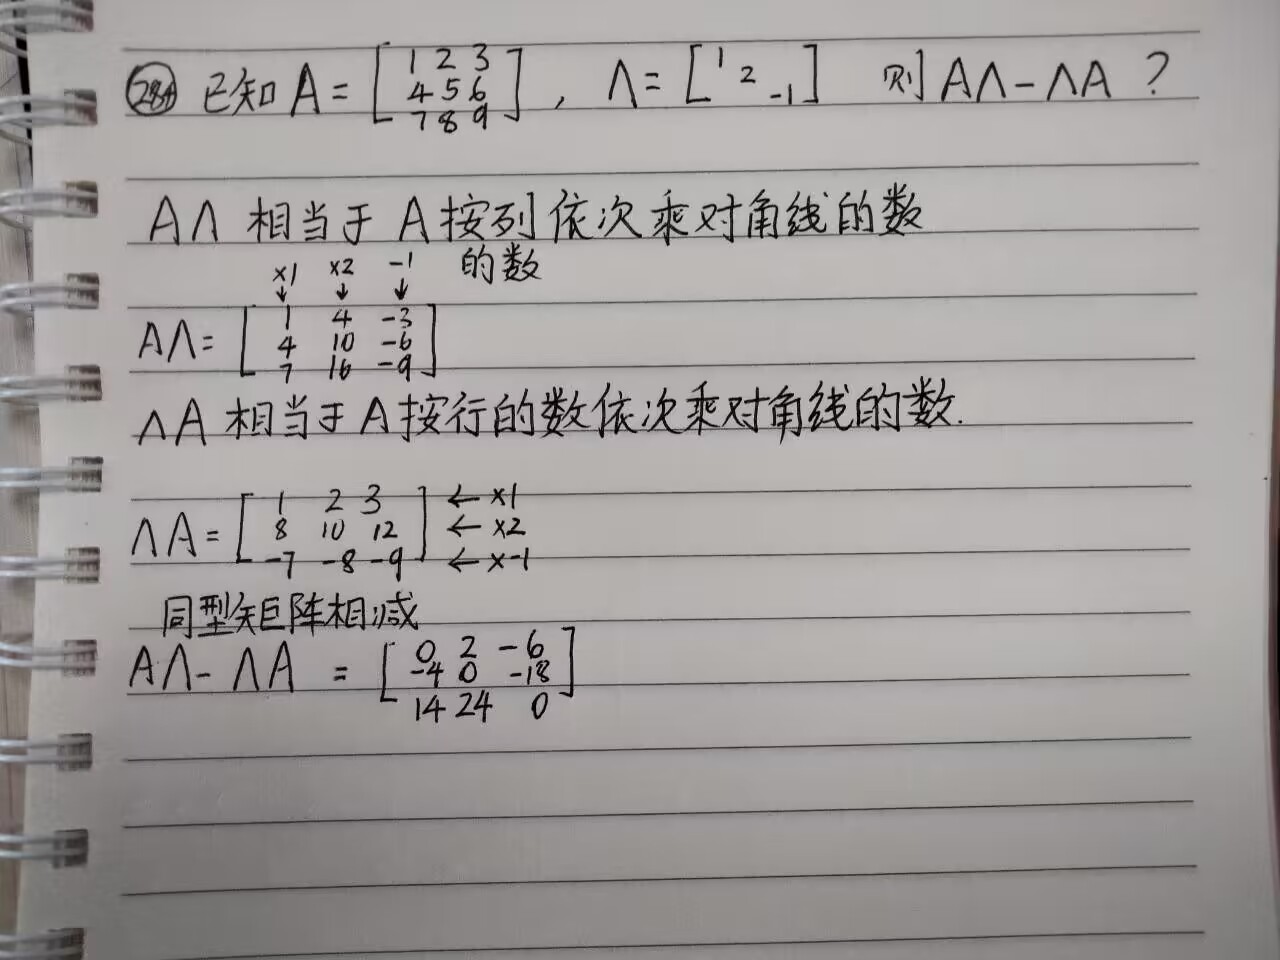 284 已知 A = [1 2 3 4 5 6 7 8 9], Λ = [1 2 -1] 则 AΛ - ΛA ?
AΛ 相当于 A 按列依次乘对角线的数
×1 ×2 -1 的数
↓ ↓ ↓
AΛ = [1 4 -3
4 10 -6
7 16 -9]
ΛA 相当于 A 按行的数依次乘对角线的数.
ΛA = [1 2 3] ← ×1
8 10 12 ← ×2
-7 -8 -9 ← ×-1
同型矩阵相减
AΛ - ΛA = [0 2 -6
-4 0 -18
14 24 0]